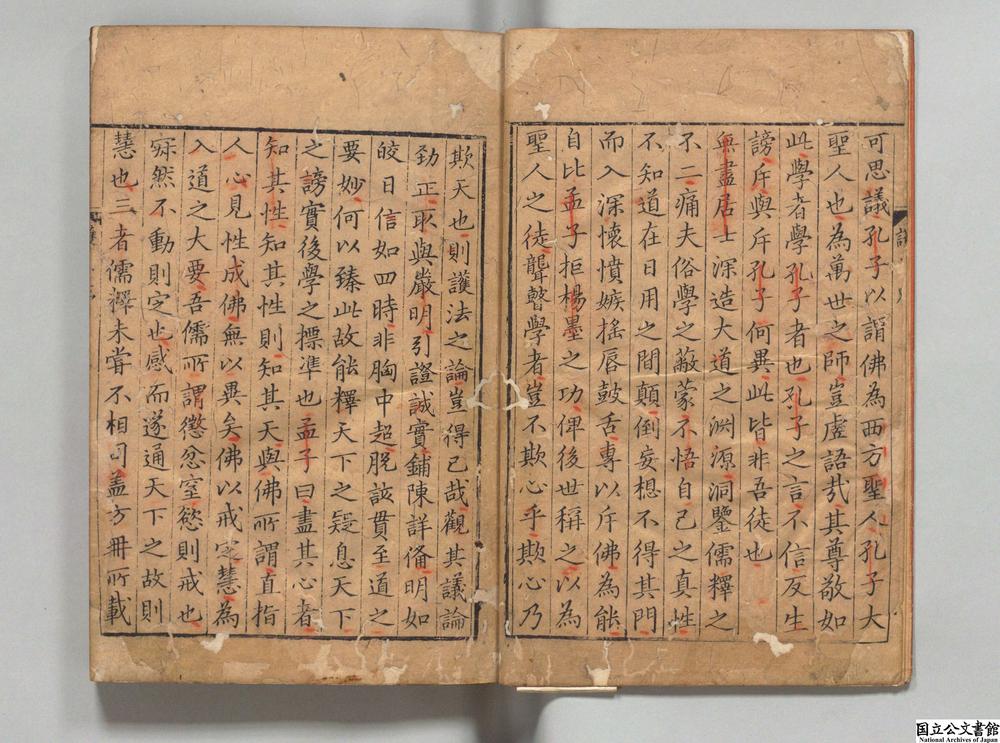 可思議孔子以謂佛為西方聖人孔子大
聖人也為萬世之師豈虛語㢤其尊敬如
此學者學孔子者也孔子之言不信反生
謗斥與斥孔子何異此皆非吾徒也
無盡居士深造大道之淵源洞鑒儒釋之
不二痛夫俗學之蔽蒙不悟自己之真性
不知道在日用之間顛倒妄想不得其門
而入深懷憤嫉搖唇鼓舌專以斥佛為能
自比孟子拒楊墨之功俾後世稱之以為
聖人之徒聾瞽學者豈不欺心乎欺心乃
欺天也則護法之論豈得已哉觀其議論
勁正取與嚴明引證誠實鋪陳詳俻明如
皎日信如四時非胸中超脫該貫至道之
要妙何以臻此故能釋天下之疑息天下
之謗實後學之標準也孟子曰盡其心者
知其性知其性則知其天與佛所謂直指
人心見性成佛無以異矣佛以戒定慧為
入道之大要吾儒所謂懲忿窒慾則戒也
寂然不動則定也感而遂通天下之故則
慧也三者儒釋未嘗不相同盖方冊所載
国立公文書館
National Archives of Japan